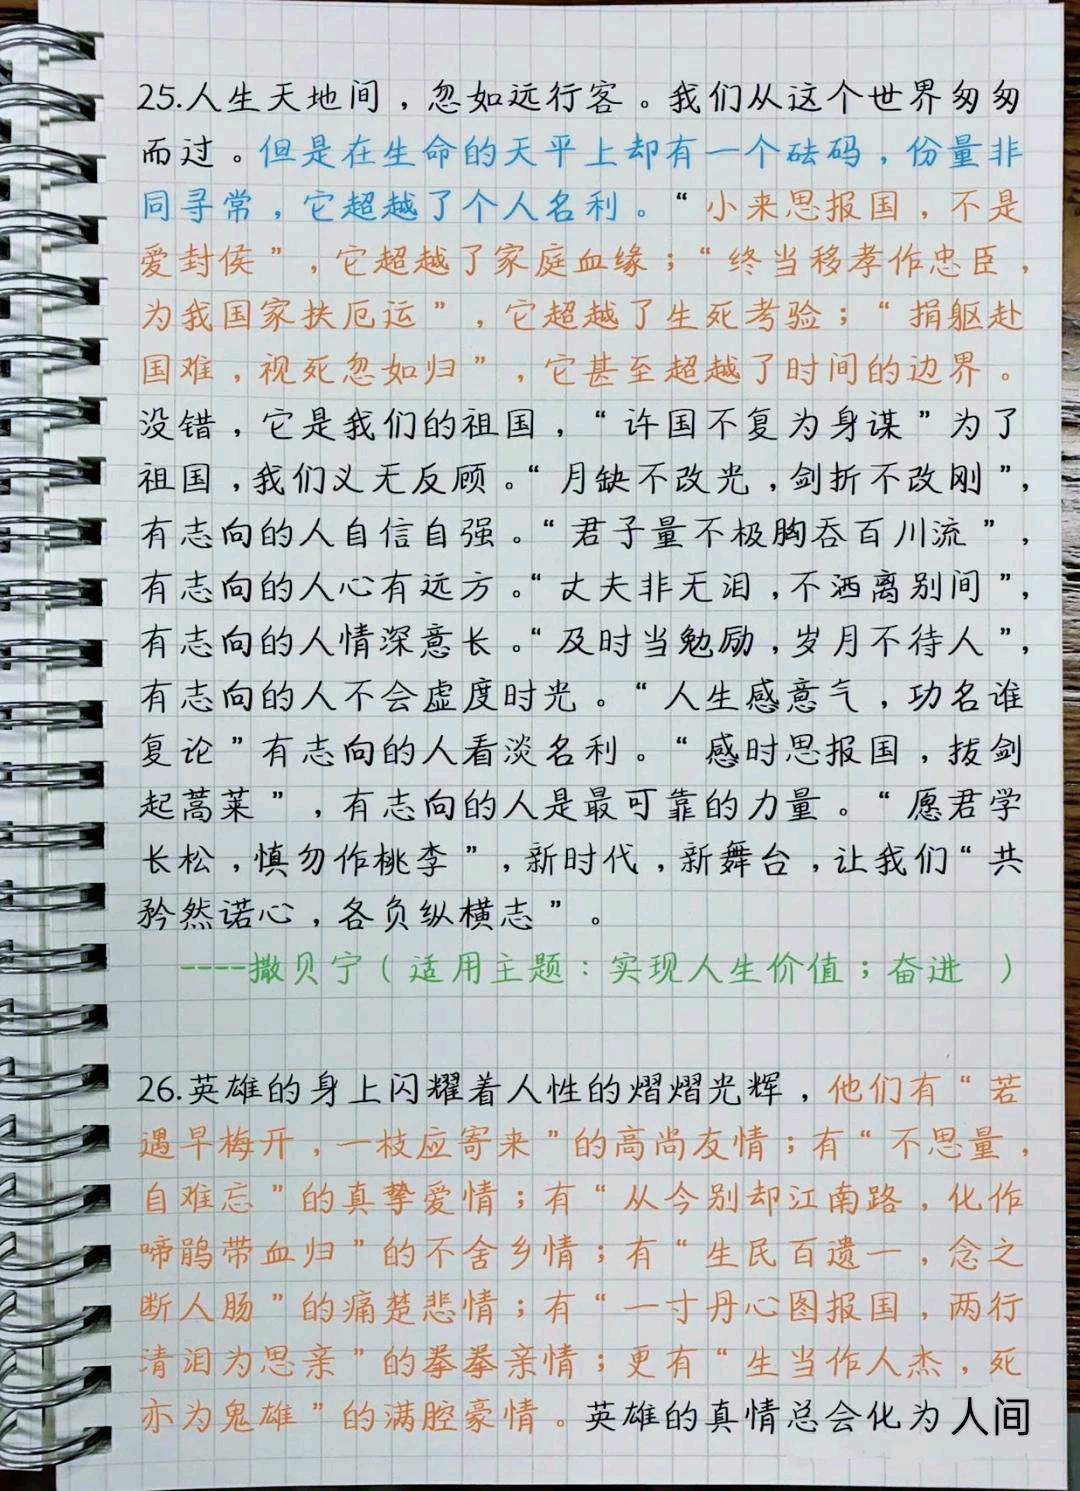 25.人生天地间，忽如远行客。我们从这个世界匆匆
而过。但是在生命的天平上却有一个砝码，份量非
同寻常，它超越了个人名利。“小来思报国，不是
爱封侯”，它超越了家庭血缘；“终当移孝作忠臣，
为我国家扶厄运”，它超越了生死考验；“捐躯赴
国难，视死忽如归”，它甚至超越了时间的边界。
没错，它是我们的祖国，“许国不复为身谋”为了
祖国，我们义无反顾。“月缺不改光，剑折不改刚”，
有志向的人自信自强。“君子量不极胸吞百川流”，
有志向的人心有远方。“丈夫非无泪，不洒离别间”，
有志向的人情深意长。“及时当勉励，岁月不待人”，
有志向的人不会虚度时光。“人生感意气，功名谁
复论”有志向的人看淡名利。“感时思报国，拔剑
起蒿莱”，有志向的人是最可靠的力量。“愿君学
长松，慎勿作桃李”，新时代，新舞台，让我们“共
矜然诺心，各负纵横志”。
----撒贝宁（适用主题：实现人生价值；奋进 ）
26.英雄的身上闪耀着人性的熠熠光辉，他们有“若
遇早梅开，一枝应寄来”的高尚友情；有“不思量，
自难忘”的真挚爱情；有“从今别却江南路，化作
啼鹃带血归”的不舍乡情；有“生民百遗一，念之
断人肠”的痛楚悲情；有“一寸丹心图报国，两行
清泪为思亲”的拳拳亲情；更有“生当作人杰，死
亦为鬼雄”的满腔豪情。英雄的真情总会化为人间